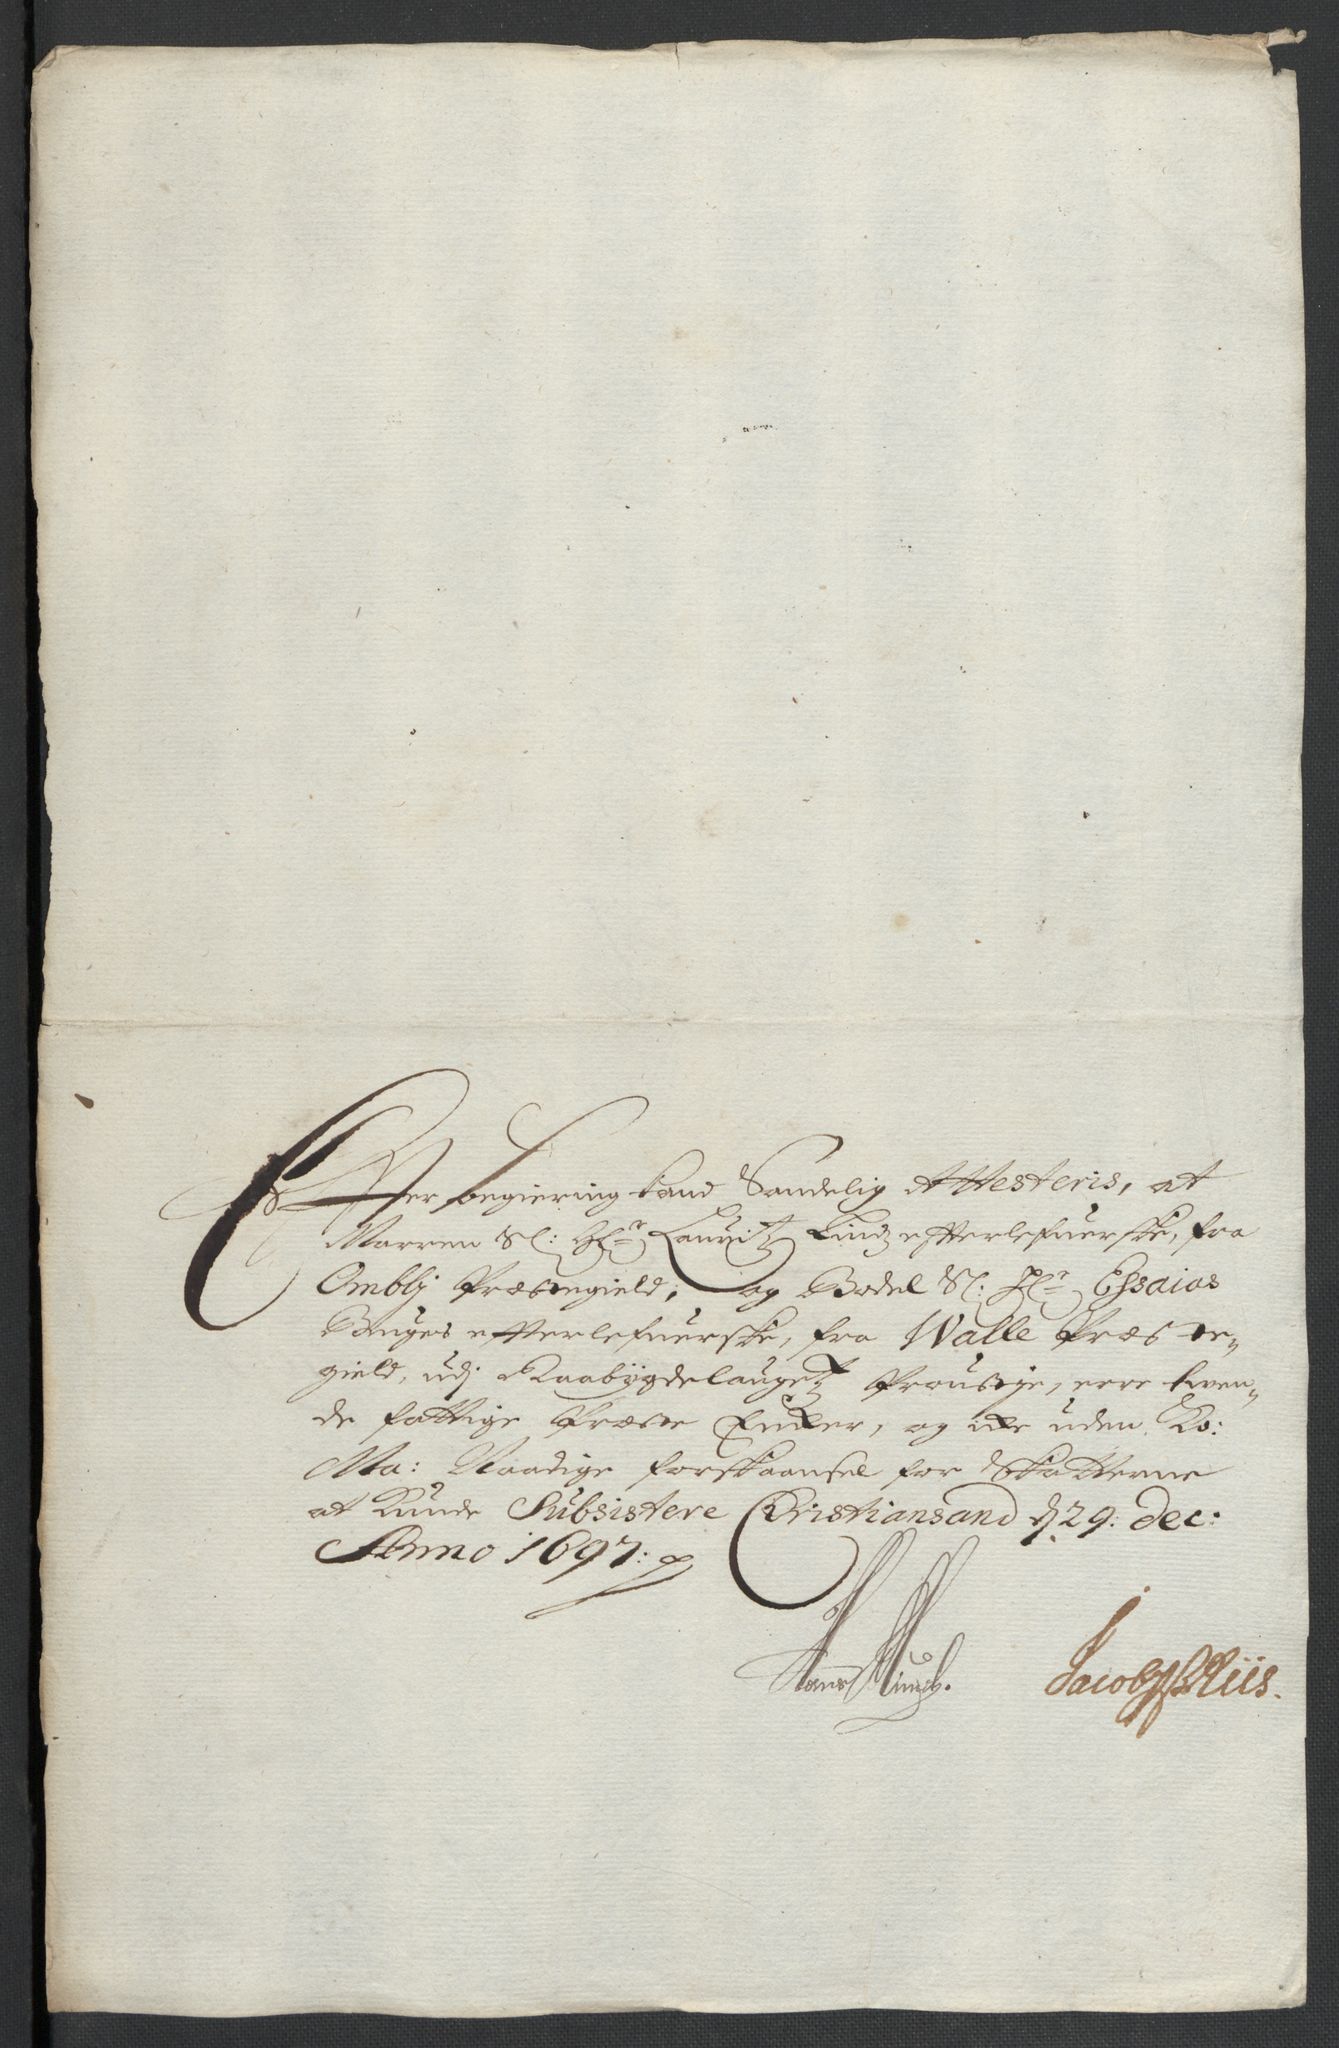 Efter begiering kand Sandelig Attesteris, at
Marren Sl: Hr Lauritz Lindz efterlefuerske, fra
Ombli Præstegield, og Bodel Sl: Hr Essaias
Bruges efterlefuerske, fra Walle Præste-
gield, udj Raabÿgdelaugetz Proustje, ere tven-
de fattige Præste Encker, og icke uden Ko:
Ma: Naadige forskaansel for Skatterne
at kunde Subsistere Christiansand d 29: dec:
Anno 1697:
Hans Munch. Jacob Riis.